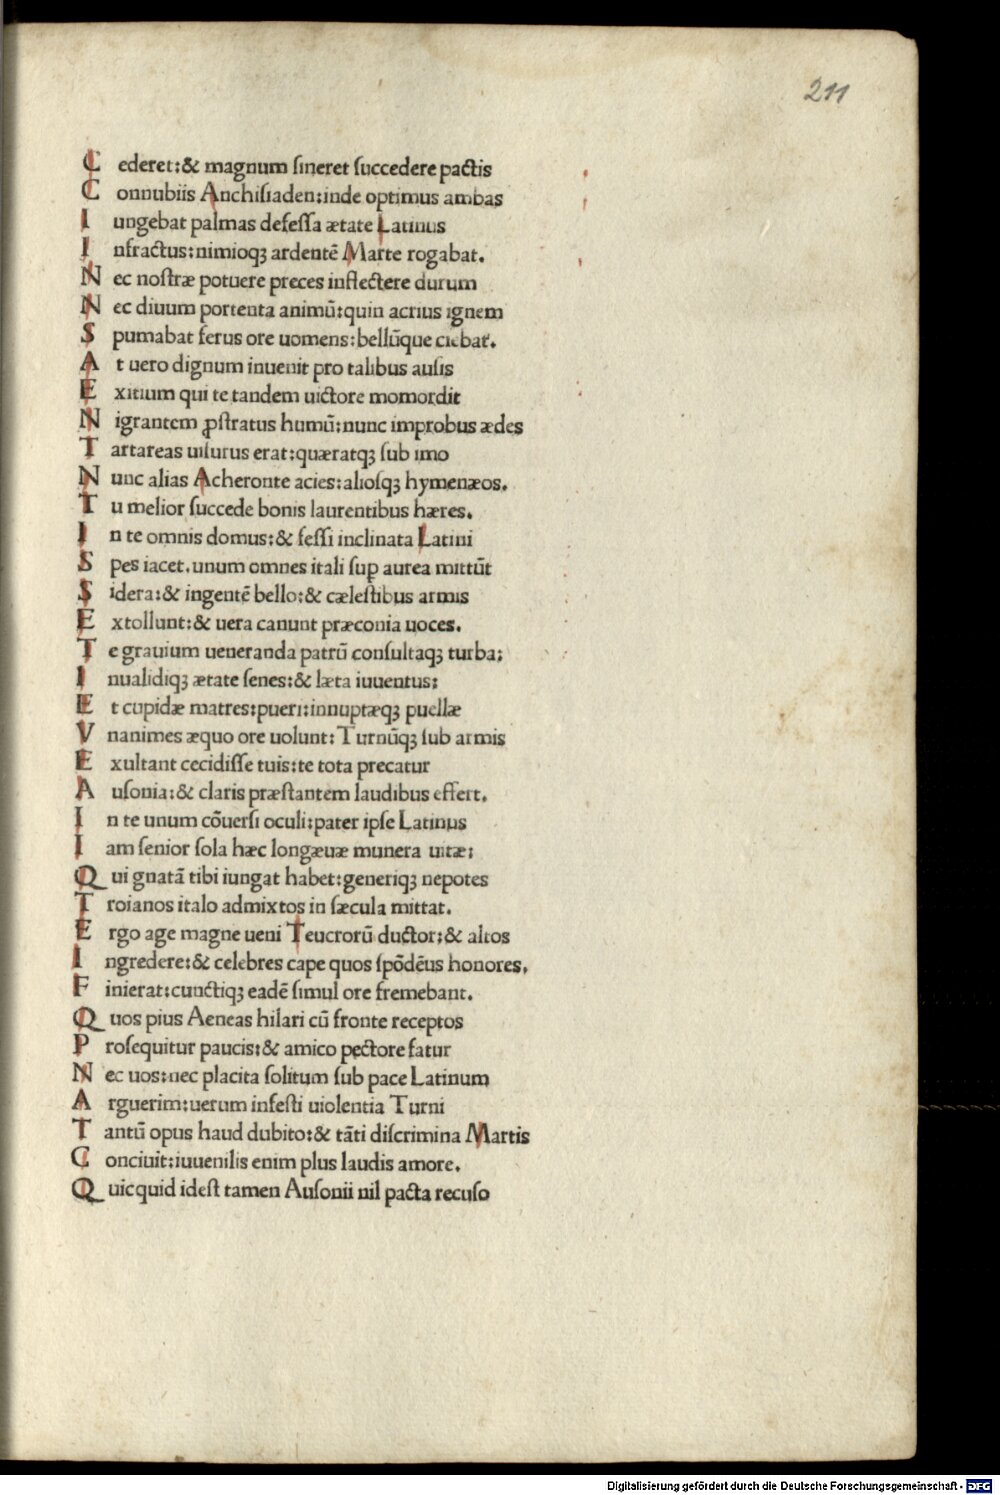 211
C ederet:& magnum ſineret ſuccedere pactis
C onnubiis Anchiſiaden:inde optimus ambas
I ungebat palmas defeſſa ætate Latinus
I nfractus:nimioqꝫ ardentē Marte rogabat.
N ec noſtræ potuere preces inflectere durum
N ec diuum portenta animū:quin acrius ignem
S pumabat ferus ore uomens:bellūque ciebat.
A t uero dignum inuenit pro talibus auſis
E xitium qui te tandem uictore momordit
N igrantem ꝓſtratus humū:nunc improbus ædes
T artareas uiſurus erat:quæratqꝫ ſub imo
N unc alias Acheronte acies:alioſqꝫ hymenæos.
T u melior ſuccede bonis laurentibus hæres.
I n te omnis domus:& feſſi inclinata Latini
S pes iacet.unum omnes itali ſuꝑ aurea mittūt
S idera:& ingentē bello:& cæleſtibus armis
E xtollunt:& uera canunt præconia uoces.
T e grauium ueneranda patrū conſultaqꝫ turba;
I nualidiqꝫ ætate ſenes:& læta iuuentus;
E t cupidæ matres:pueri:innuptæqꝫ puellæ
V nanimes æquo ore uolunt:Turnūqꝫ ſub armis
E xultant cecidiſſe tuis:te tota precatur
A uſonia:& claris præſtantem laudibus effert.
I n te unum cōuerſi oculi:pater ipſe Latinus
I am ſenior ſola hæc longæuæ munera uitæ;
Q ui gnatā tibi iungat habet:generiqꝫ nepotes
T roianos italo admixtos in ſæcula mittat.
E rgo age magne ueni Teucrorū ductor:& altos
I ngredere:& celebres cape quos ſpōdēus honores.
F inierat:cunctiqꝫ eadē ſimul ore fremebant.
Q uos pius Aeneas hilari cū fronte receptos
P roſequitur paucis:& amico pectore fatur
N ec uos:nec placita ſolitum ſub pace Latinum
A rguerim:uerum infeſti uiolentia Turni
T antū opus haud dubito:& tāti diſcrimina Martis
C onciuit:iuuenilis enim plus laudis amore.
Q uicquid idest tamen Auſonii nil pacta recuſo
Digitalisierung gefördert durch die Deutsche Forschungsgemeinschaft - DFG